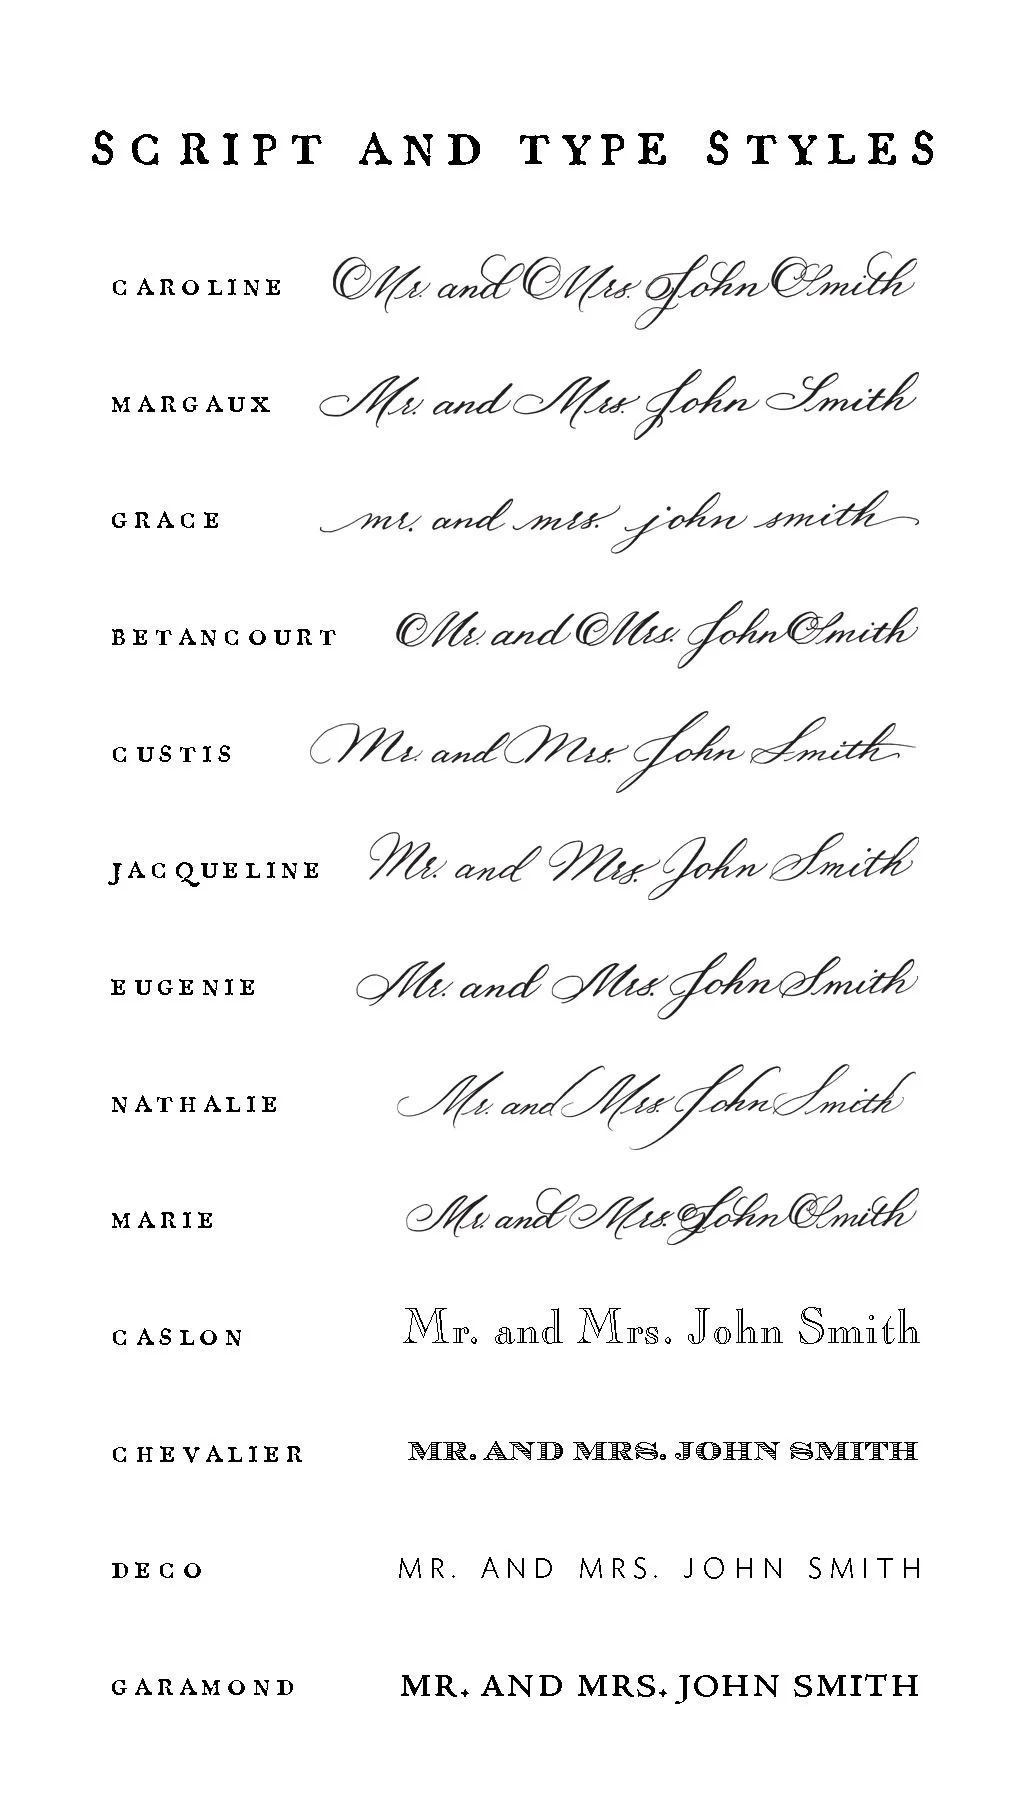 SCRIPT AND TYPE STYLES
CAROLINE Mr. and Mrs. John Smith
MARGAUX Mr. and Mrs. John Smith
GRACE mr. and mrs. john smith
BETANCOURT Mr. and Mrs. John Smith
CUSTIS Mr. and Mrs. John Smith
JACQUELINE Mr. and Mrs. John Smith
EUGENIE Mr. and Mrs. John Smith
NATHALIE Mr. and Mrs. John Smith
MARIE Mr. and Mrs. John Smith
CASLON Mr. and Mrs. John Smith
CHEVALIER MR. AND MRS. JOHN SMITH
DECO MR. AND MRS. JOHN SMITH
GARAMOND MR. AND MRS. JOHN SMITH